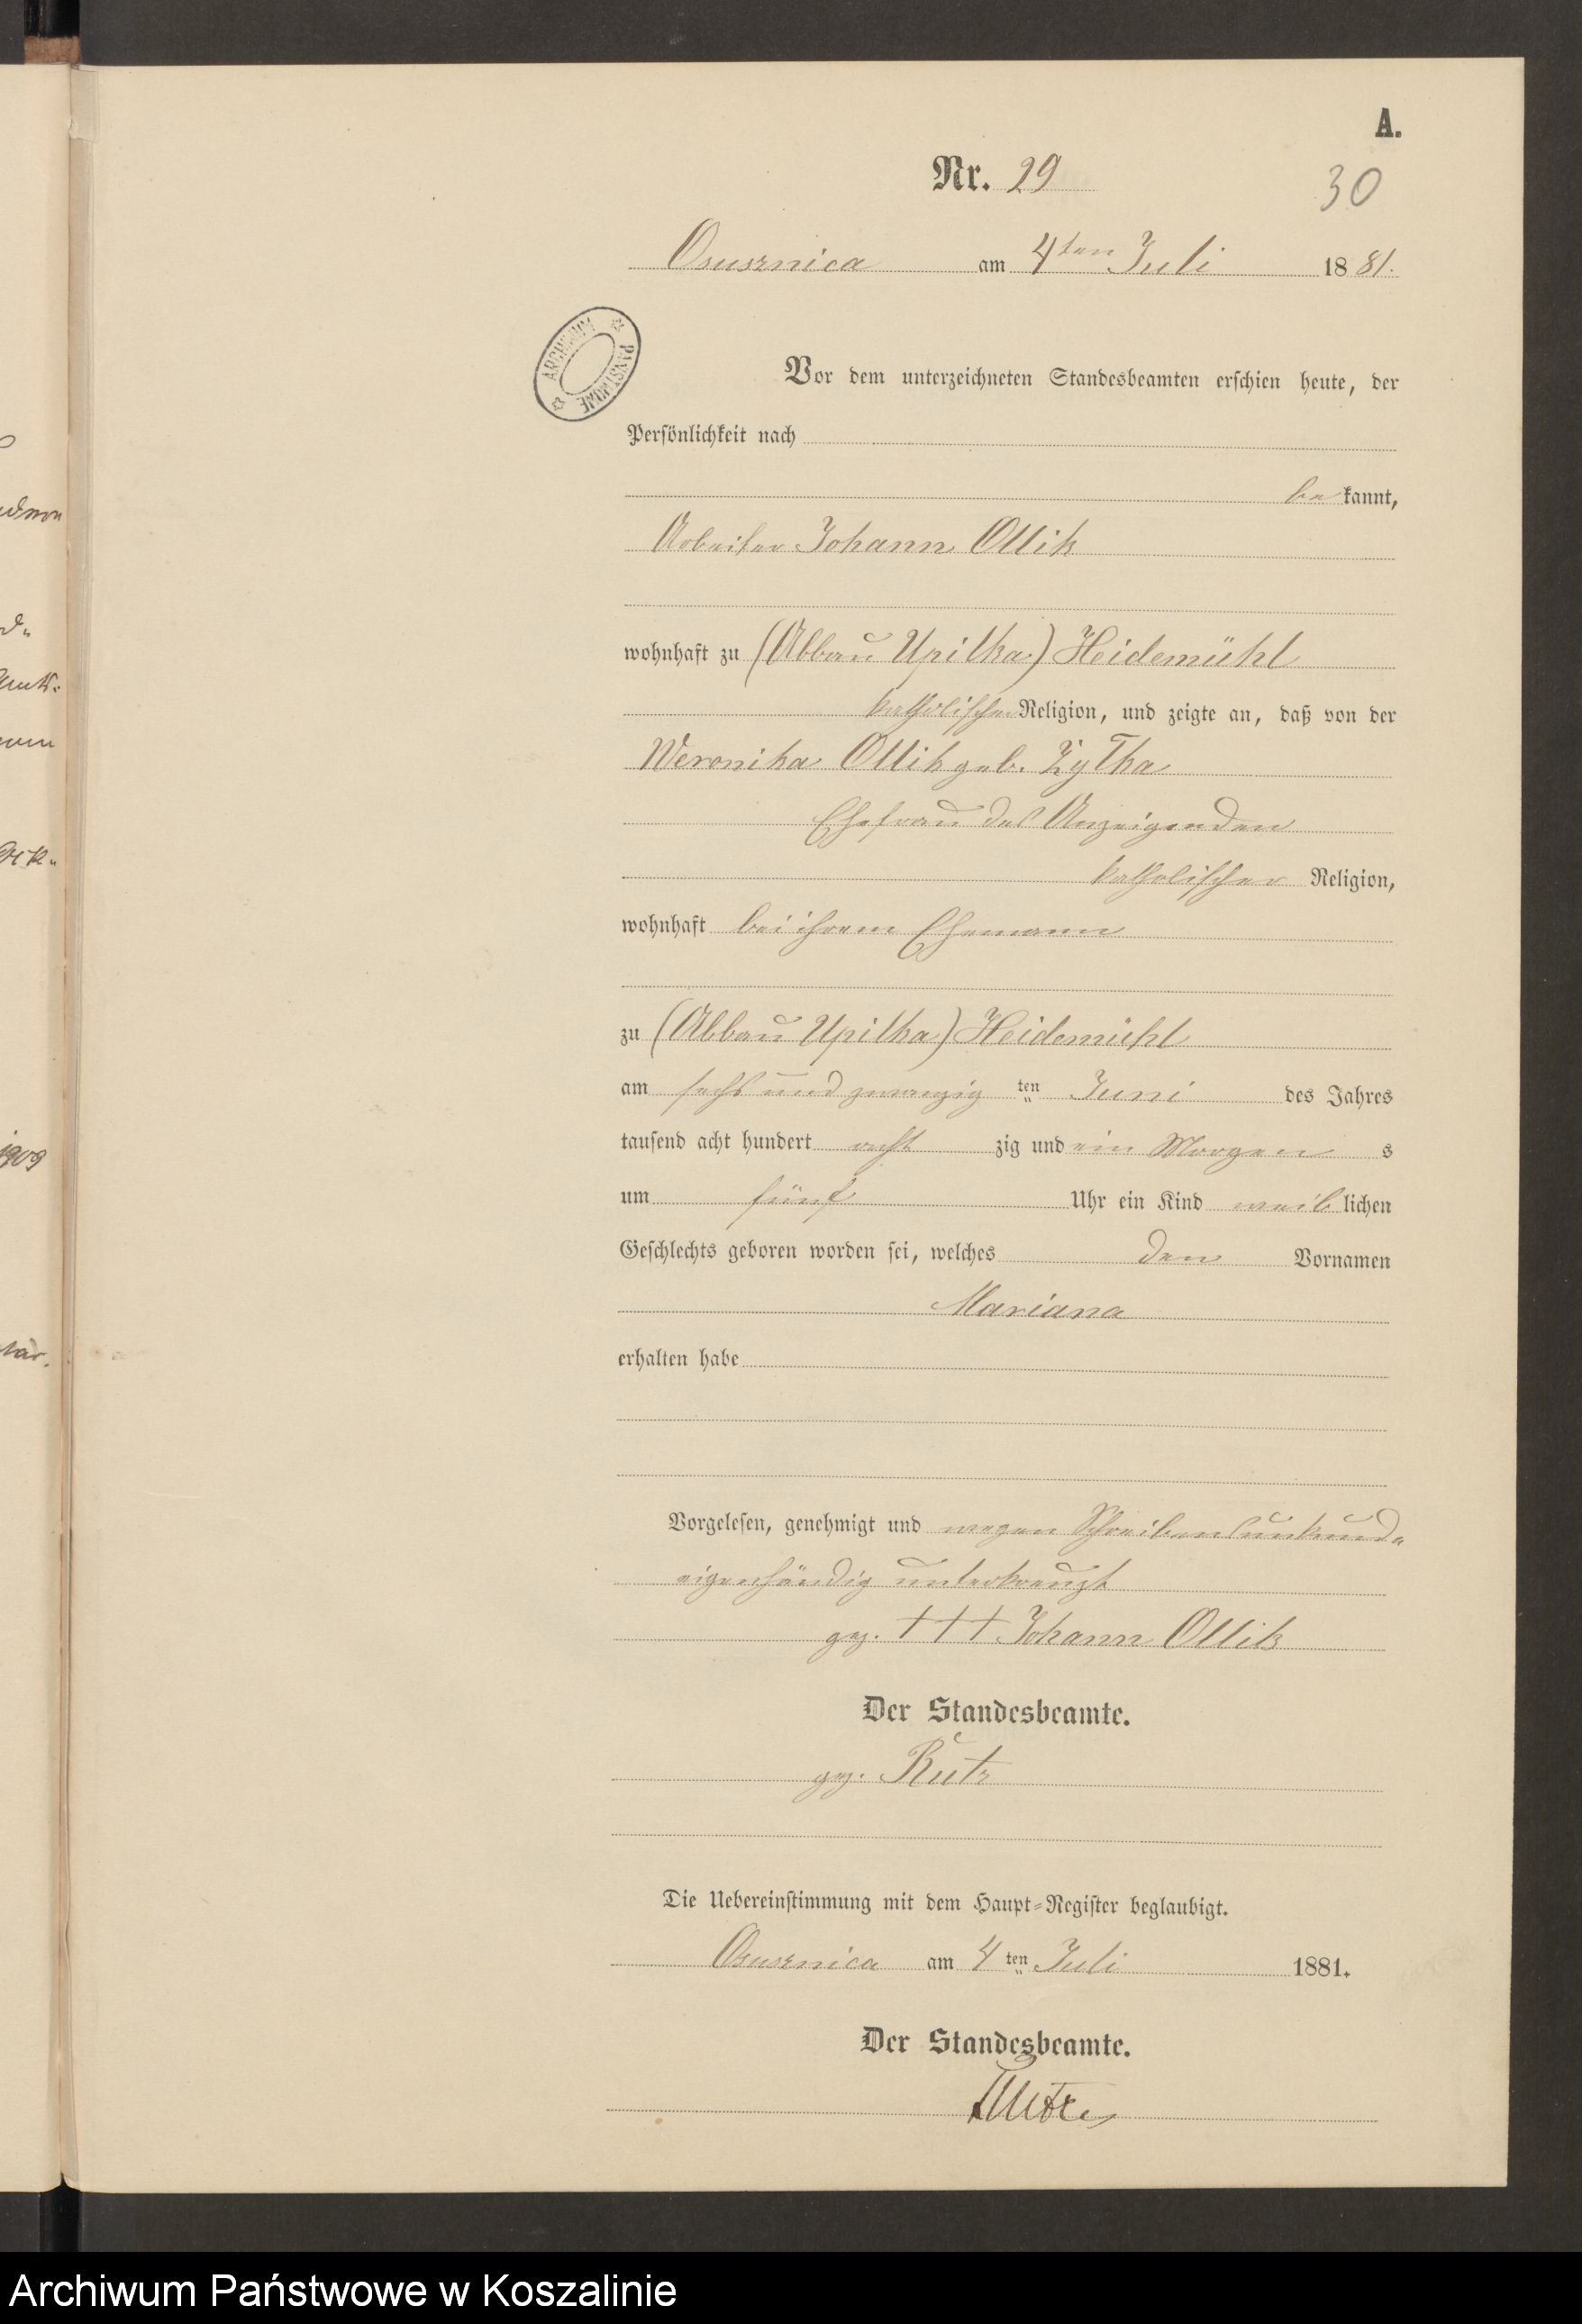 A.
Nr. 29
30
Osusznica am 4ten Juli 1881.
ARCHIWUM PAŃSTWOWE
Vor dem unterzeichneten Standesbeamten erschien heute, der
Persönlichkeit nach
bekannt,
Arbeiter Johann Ollik
wohnhaft zu (Abbau Upilka) Heidemühl
katholischer Religion, und zeigte an, daß von der
Weronika Ollik geb. Zytka
Ehefrau des Anzeigenden
katholischer Religion,
wohnhaft bei ihrem Ehemann
zu (Abbau Upilka) Heidemühl
am sechs und zwanzig ten Juni des Jahres
tausend acht hundert acht zig und ein Morgens
um fünf Uhr ein Kind weiblichen
Geschlechts geboren worden sei, welches den Vornamen
Mariana
erhalten habe
Vorgelesen, genehmigt und wegen Schreibensunkund„
eigenhändig unterkreuzt
gez. +++ Johann Ollik
Der Standesbeamte.
gez. Rutz
Die Uebereinstimmung mit dem Haupt-Register beglaubigt.
Osusznica am 4ten Juli 1881.
Der Standesbeamte.
Rutz
1909
Archiwum Państwowe w Koszalinie